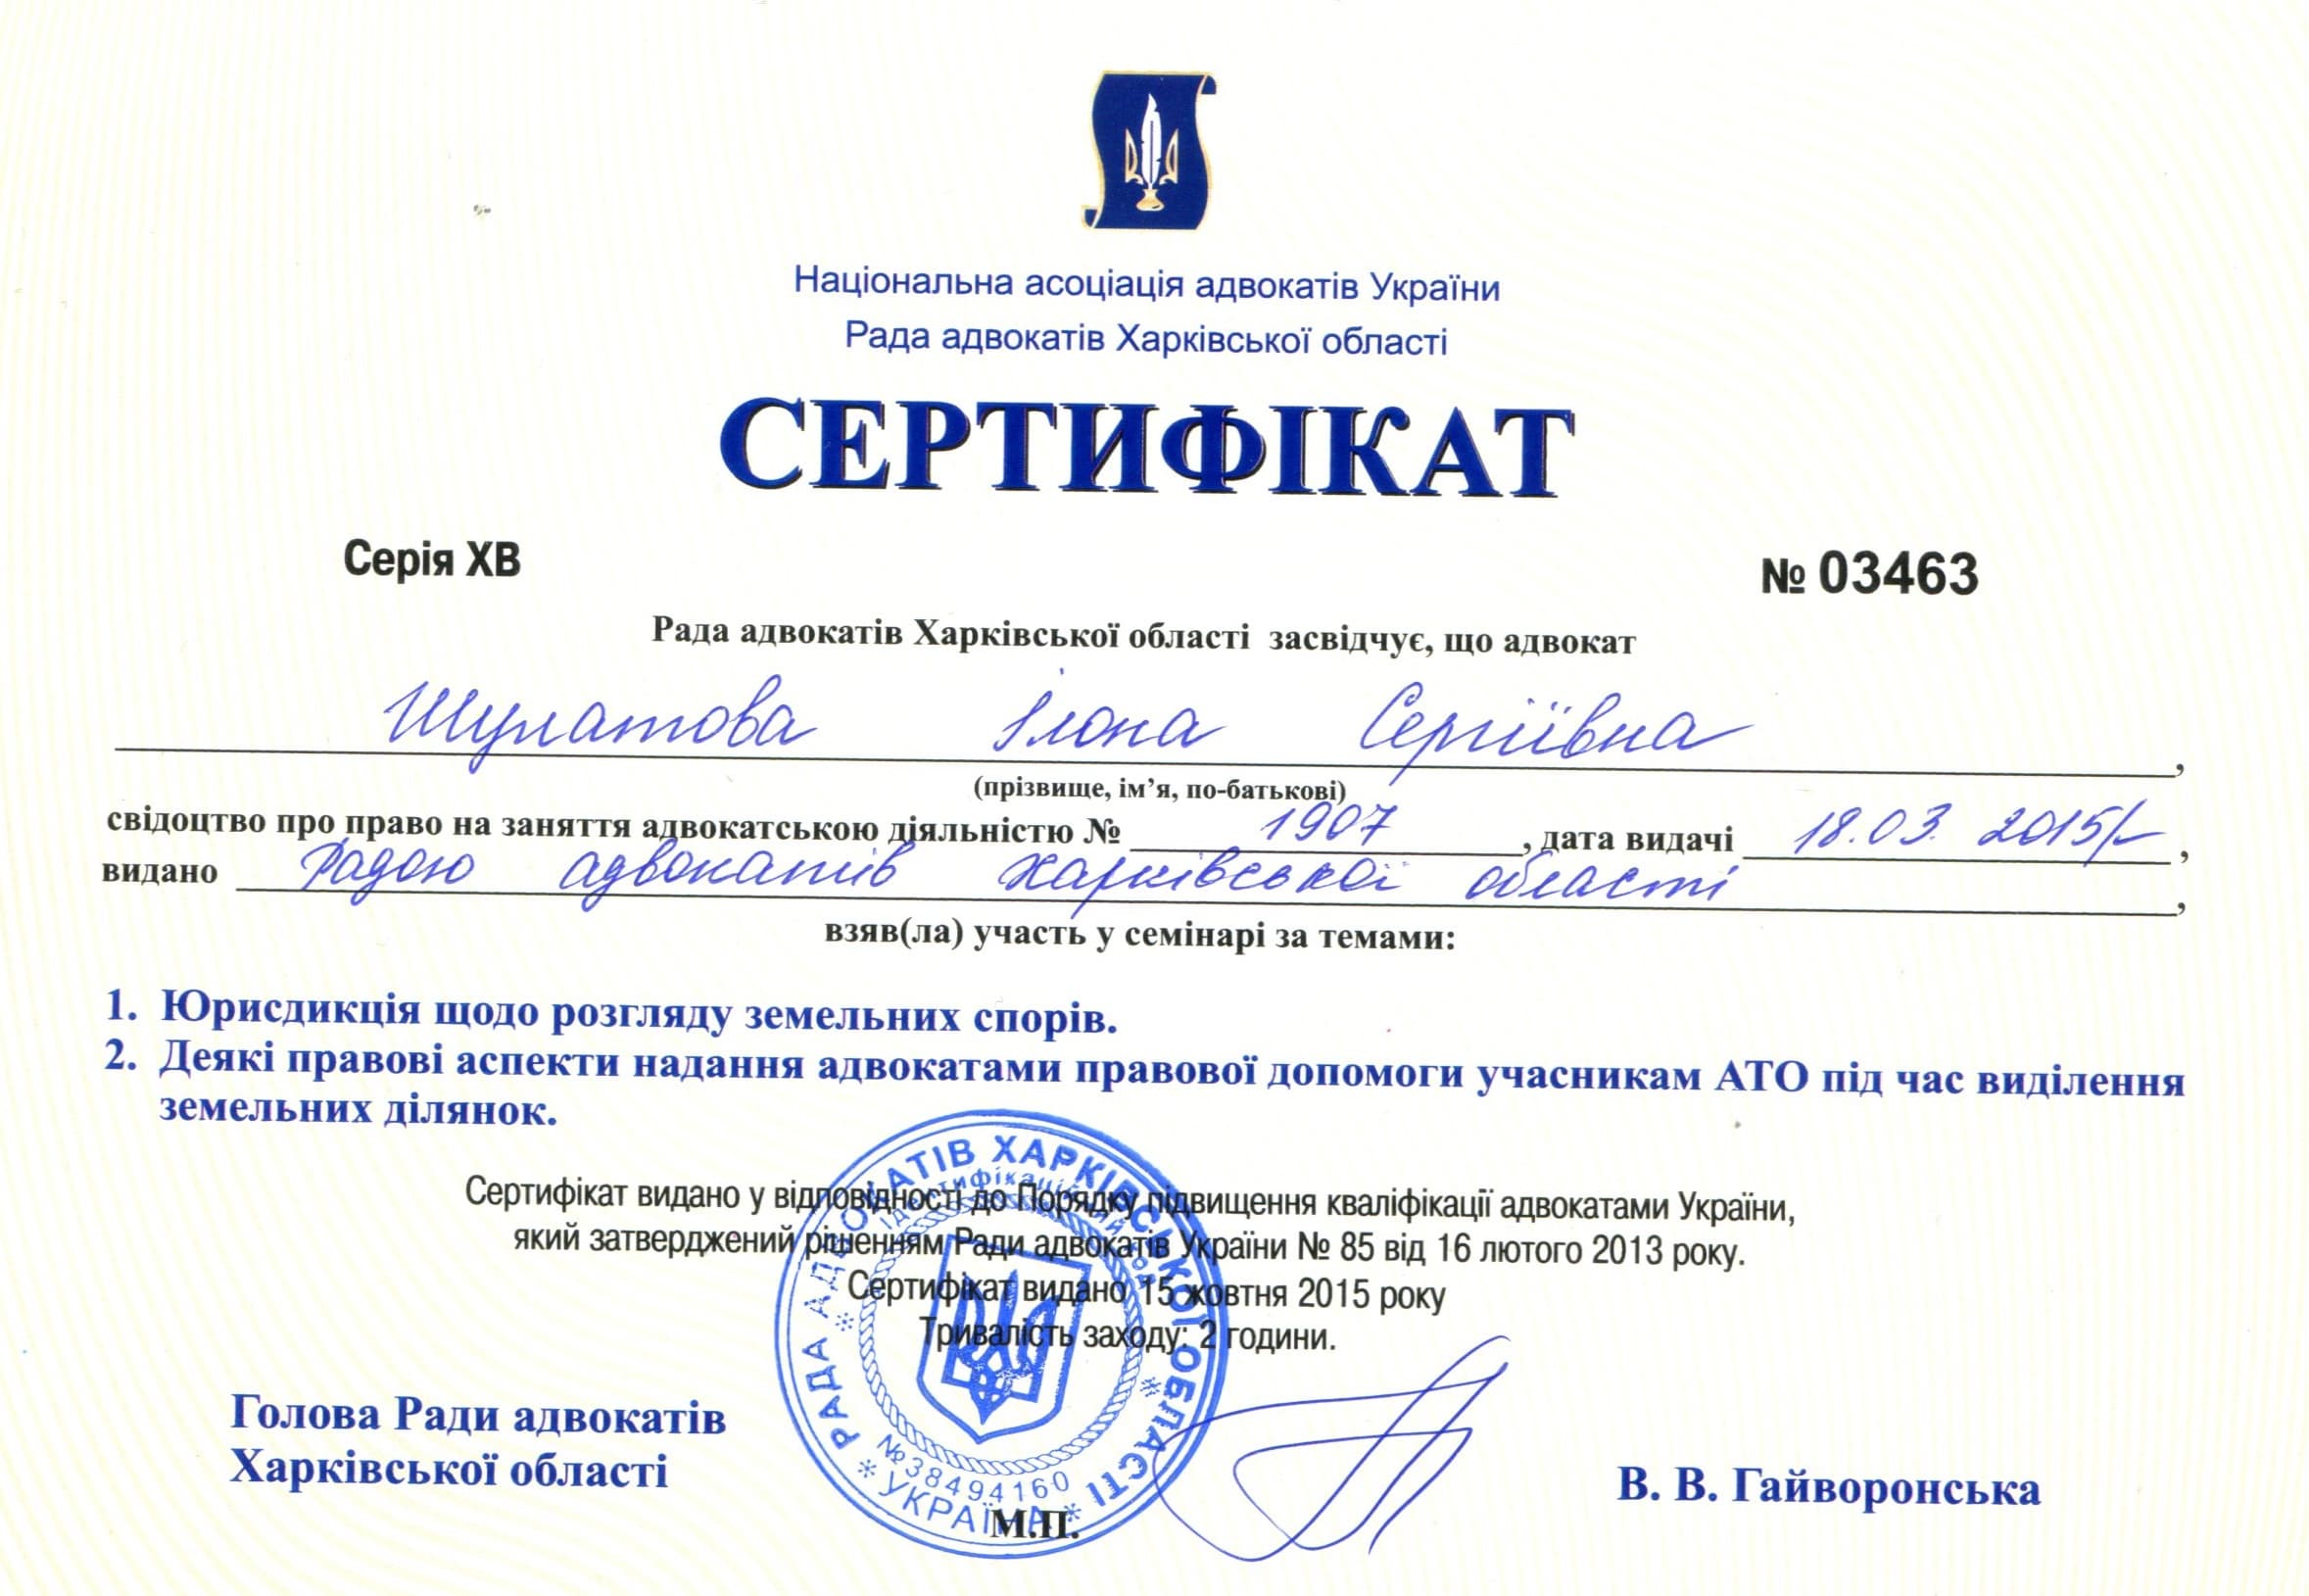 Національна асоціація адвокатів України
Рада адвокатів Харківської області
СЕРТИФІКАТ
Серія ХВ
№ 03463
Рада адвокатів Харківської області засвідчує, що адвокат
Шулатова Ілона Сергіївна,
(прізвище, ім’я, по-батькові)
свідоцтво про право на заняття адвокатською діяльністю № 1907, дата видачі 18.03.2015,
видано Радою адвокатів Харківської області,
взяв(ла) участь у семінарі за темами:
1. Юрисдикція щодо розгляду земельних спорів.
2. Деякі правові аспекти надання адвокатами правової допомоги учасникам АТО під час виділення
земельних ділянок.
Сертифікат видано у відповідності до Порядку підвищення кваліфікації адвокатами України,
який затверджений рішенням Ради адвокатів України № 85 від 16 лютого 2013 року.
Сертифікат видано 15 жовтня 2015 року
Тривалість заходу: 2 години.
Голова Ради адвокатів
Харківської області
В. В. Гайворонська
М.П.
РАДА АДВОКАТІВ ХАРКІВСЬКОЇ ОБЛАСТІ
Ідентифікаційний код
№38494160
* УКРАЇНА *